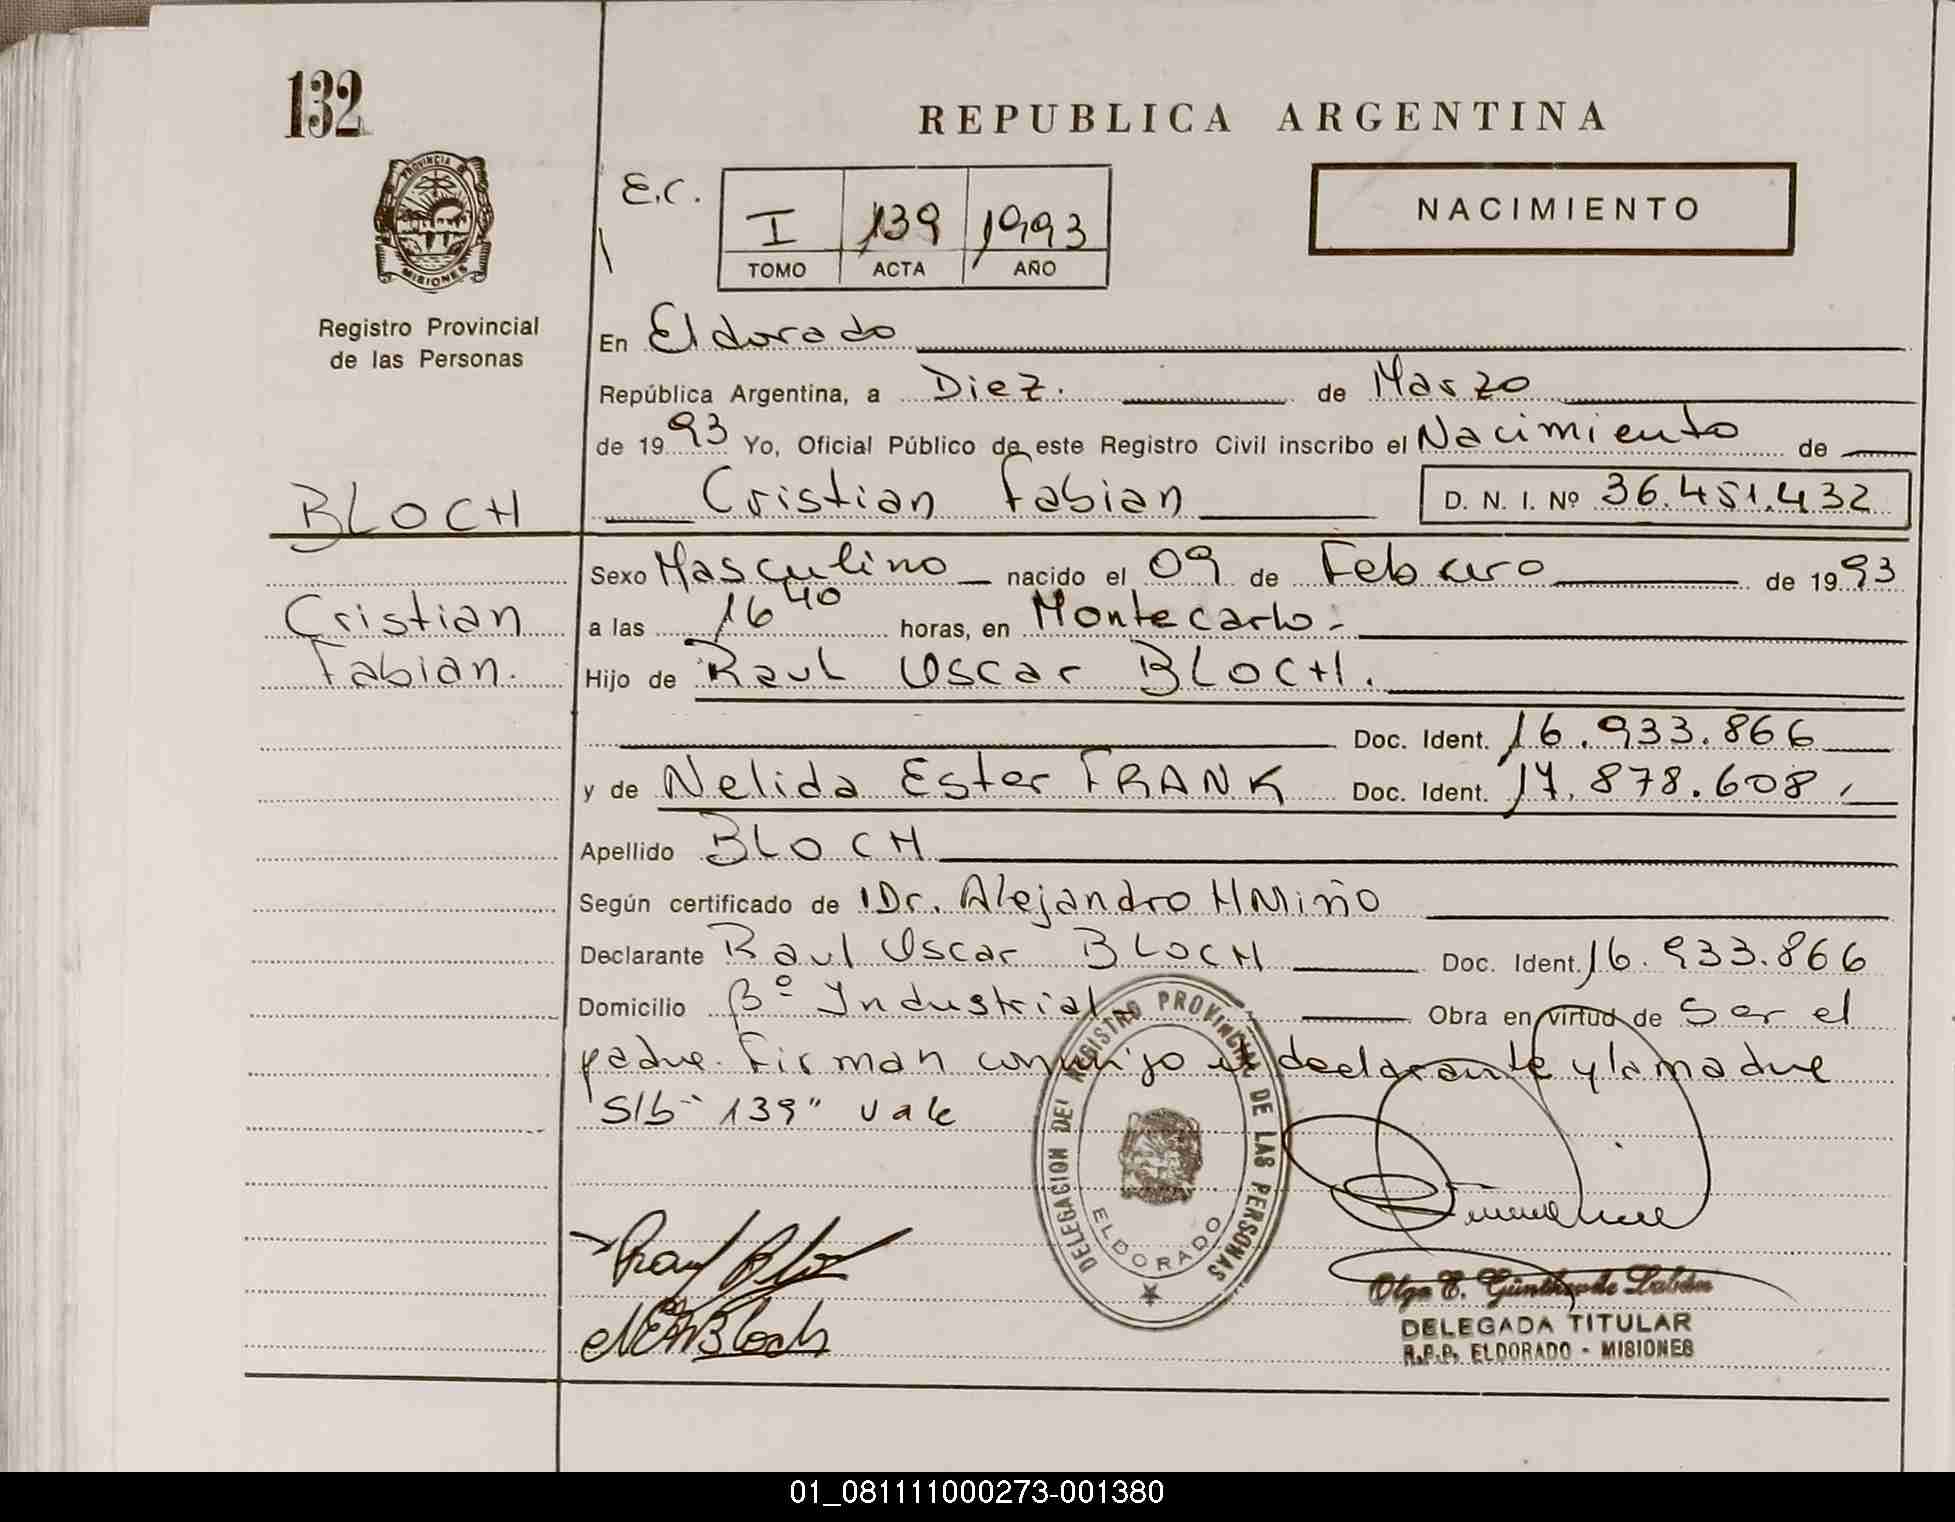 132
PROVINCIA
MISIONES
Registro Provincial
de las Personas
BLOCH
Cristian
Fabian.
REPUBLICA ARGENTINA
E.C.
I 139 1993
TOMO ACTA AÑO
NACIMIENTO
En Eldorado
República Argentina, a Diez. de Marzo
de 1993 Yo, Oficial Público de este Registro Civil inscribo el Nacimiento de
Cristian Fabian D. N. I. Nº 36.451.432
Sexo Masculino nacido el 09 de Febrero de 1993
a las 16 40 horas, en Montecarlo.
Hijo de Raul Oscar BLOCH.
Doc. Ident. 16.933.866
y de Nelida Ester FRANK Doc. Ident. 17.878.608
Apellido BLOCH
Según certificado de Dr. Alejandro H Miño
Declarante Raul Oscar BLOCH Doc. Ident. 16.933.866
Domicilio Bº Industrial Obra en virtud de Ser el
padre. Firman conmigo el declarante y la madre
S/b "139" vale
DELEGACION DEL REGISTRO PROVINCIAL DE LAS PERSONAS
ELDORADO
Raul Bloch
NEF Bloch
Olga E. Günther de
DELEGADA TITULAR
R.P.P. ELDORADO - MISIONES
01_081111000273-001380